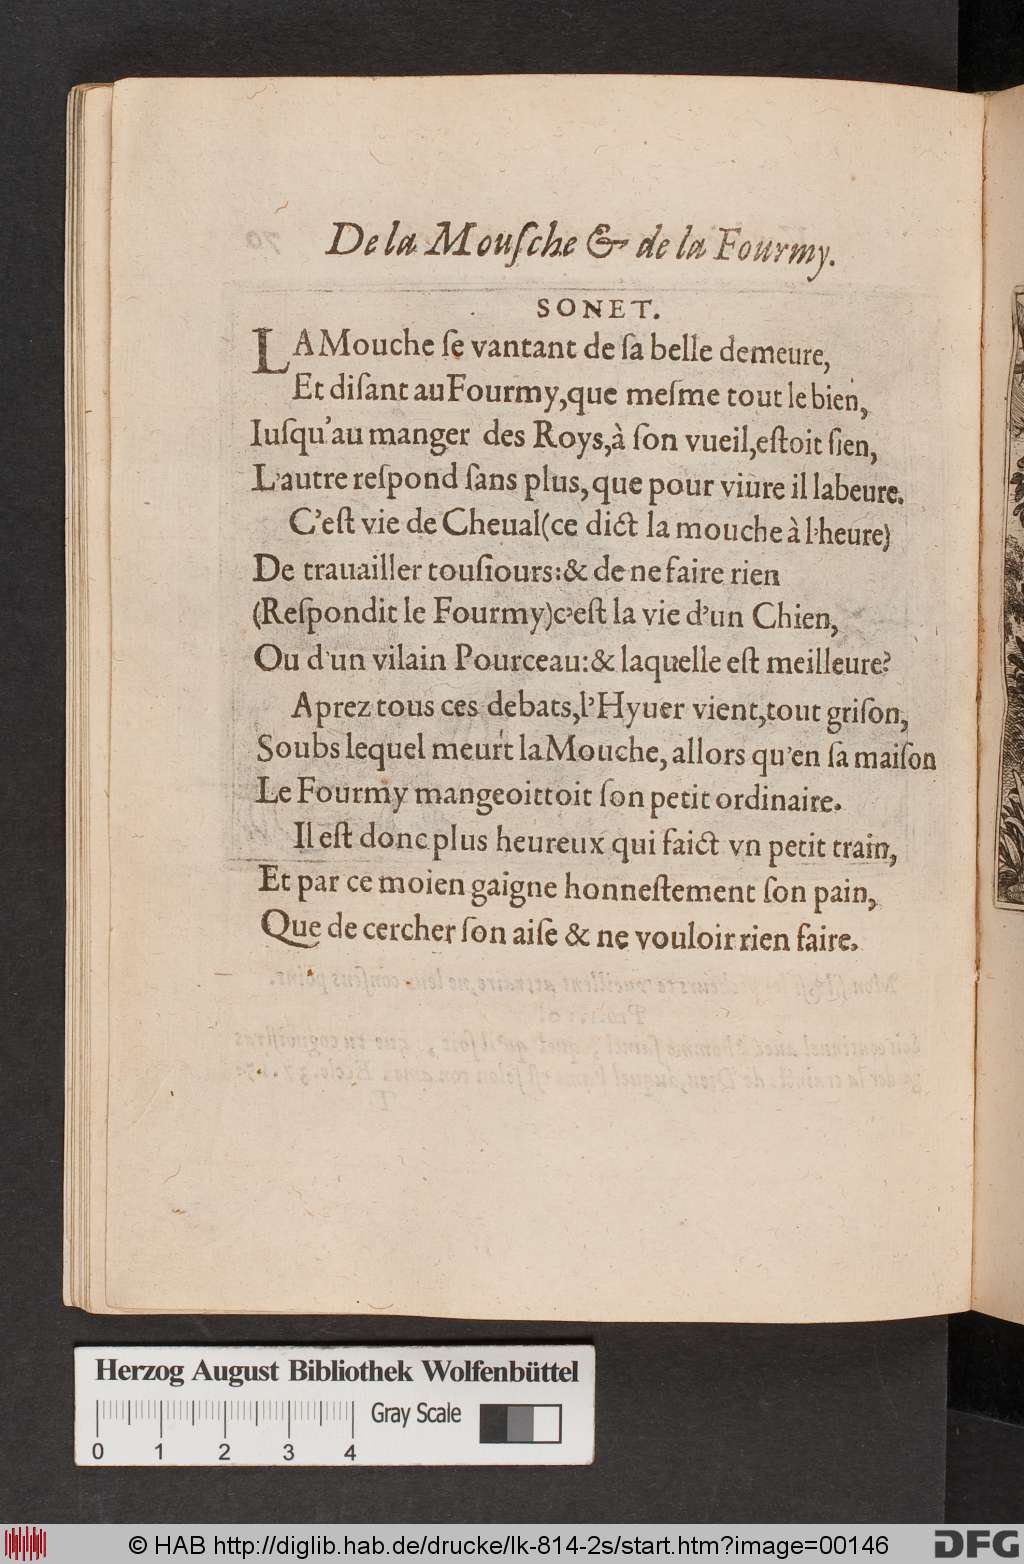 De la Mouſche & de la Fourmy.
SONET.
LA Mouche ſe vantant de ſa belle demeure,
Et diſant au Fourmy, que meſme tout le bien,
Iuſqu'au manger des Roys, à ſon vueil, eſtoit ſien,
L'autre reſpond ſans plus, que pour viure il labeure.
C'eſt vie de Cheual (ce dict la mouche à l'heure)
De trauailler touſiours: & de ne faire rien
(Reſpondit le Fourmy) c'eſt la vie d'un Chien,
Ou d'un vilain Pourceau: & laquelle eſt meilleure?
Aprez tous ces debats, l'Hyuer vient, tout griſon,
Soubs lequel meurt la Mouche, allors qu'en ſa maiſon
Le Fourmy mangeoittoit ſon petit ordinaire.
Il eſt donc plus heureux qui faict vn petit train,
Et par ce moien gaigne honneſtement ſon pain,
Que de cercher ſon aiſe & ne vouloir rien faire.
Herzog August Bibliothek Wolfenbüttel
Gray Scale
0 1 2 3 4
© HAB http://diglib.hab.de/drucke/lk-814-2s/start.htm?image=00146
DFG